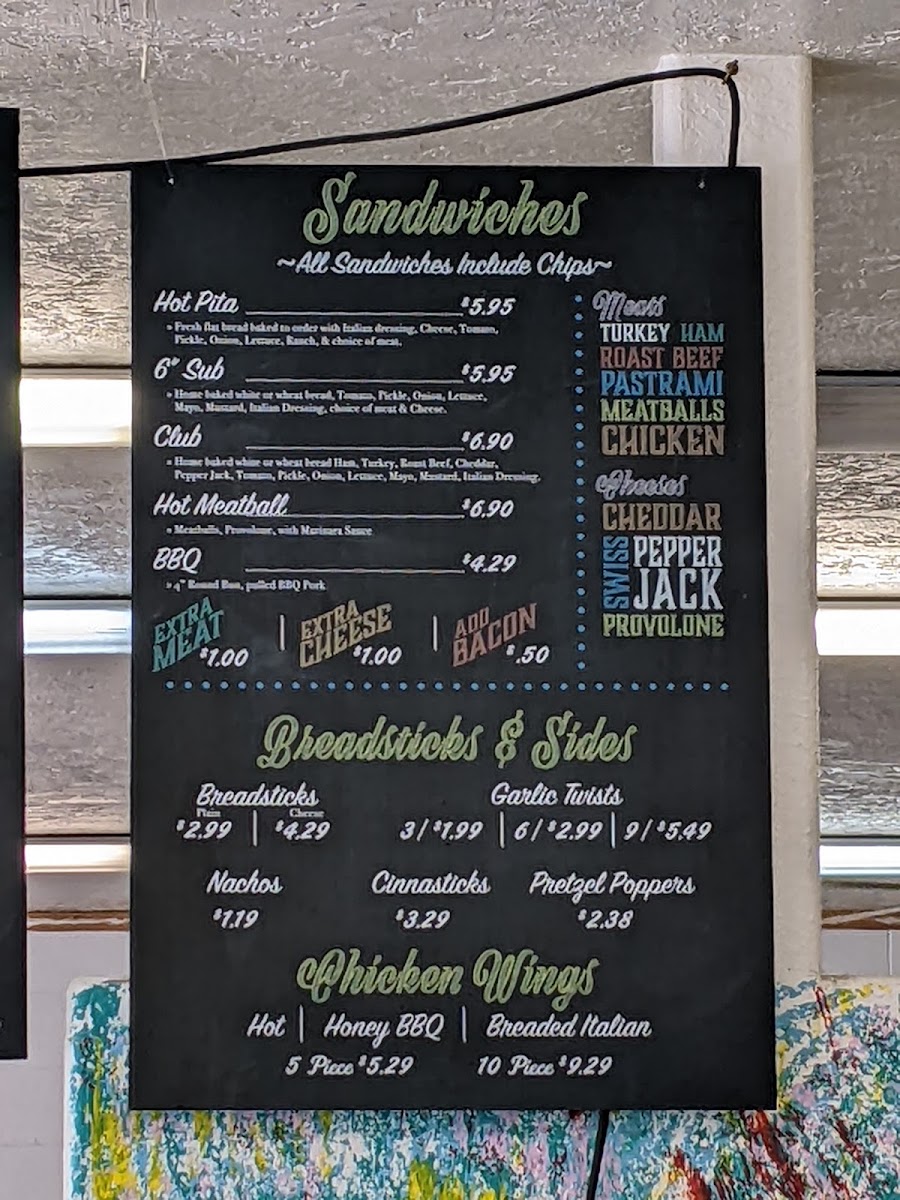 Sandwiches
~All Sandwiches Include Chips~
Hot Pita $5.95
» Fresh flat bread baked to order with Italian dressing, Cheese, Tomato,
Pickle, Onion, Lettuce, Ranch, & choice of meat.
6" Sub $5.95
» Home baked white or wheat bread, Tomato, Pickle, Onion, Lettuce,
Mayo, Mustard, Italian Dressing, choice of meat & Cheese.
Club $6.90
» Home baked white or wheat bread Ham, Turkey, Roast Beef, Cheddar,
Pepper Jack, Tomato, Pickle, Onion, Lettuce, Mayo, Mustard, Italian Dressing.
Hot Meatball $6.90
» Meatballs, Provolone, with Marinara Sauce
BBQ $4.29
» 4" Round Bun, pulled BBQ Pork
EXTRA MEAT $1.00 | EXTRA CHEESE $1.00 | ADD BACON $.50
Meats
TURKEY HAM
ROAST BEEF
PASTRAMI
MEATBALLS
CHICKEN
Cheeses
CHEDDAR
SWISS
PEPPER
JACK
PROVOLONE
Breadsticks & Sides
Breadsticks
Plain Cheese
$2.99 | $4.29
Garlic Twists
3/$1.99 | 6/$2.99 | 9/$5.49
Nachos Cinnasticks Pretzel Poppers
$1.19 $3.29 $2.38
Chicken Wings
Hot | Honey BBQ | Breaded Italian
5 Piece $5.29 10 Piece $9.29